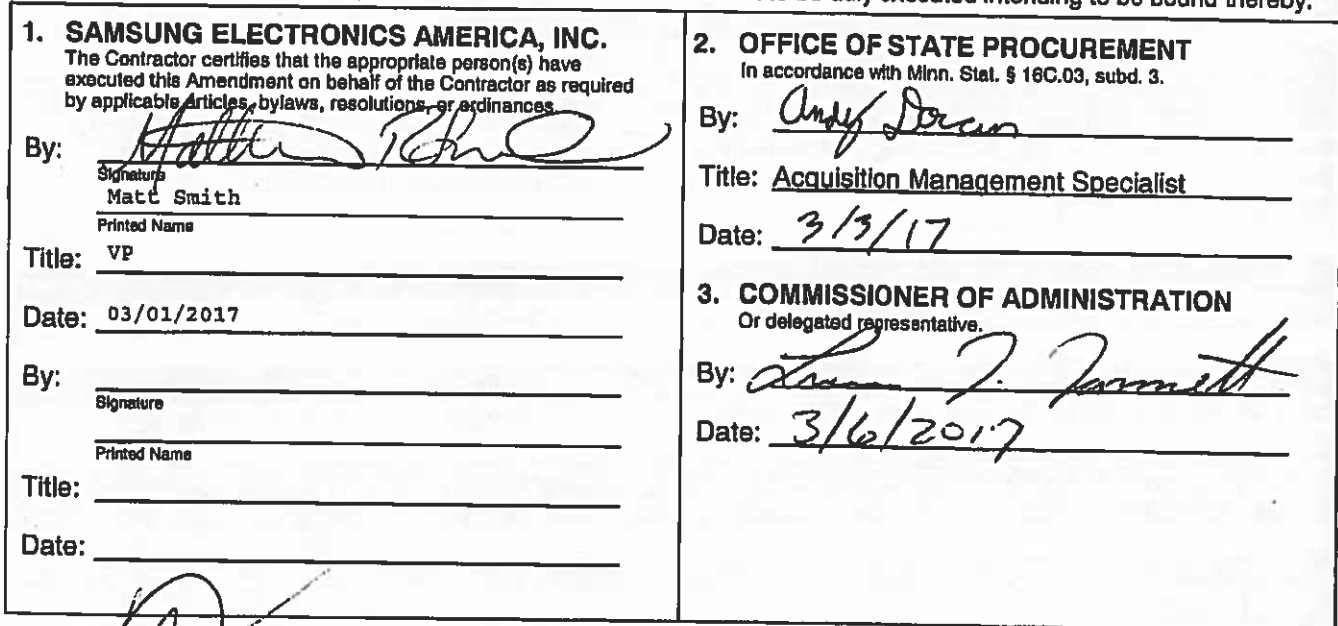 to be duly executed intending to be bound thereby.
1. SAMSUNG ELECTRONICS AMERICA, INC.
The Contractor certifies that the appropriate person(s) have
executed this Amendment on behalf of the Contractor as required
by applicable articles, bylaws, resolutions, or ordinances.
By:
Signature
Matt Smith
Printed Name
Title: VP
Date: 03/01/2017
By:
Signature
Printed Name
Title:
Date:
2. OFFICE OF STATE PROCUREMENT
In accordance with Minn. Stat. § 16C.03, subd. 3.
By: Andy Doran
Title: Acquisition Management Specialist
Date: 3/3/17
3. COMMISSIONER OF ADMINISTRATION
Or delegated representative.
By:
Date: 3/6/2017